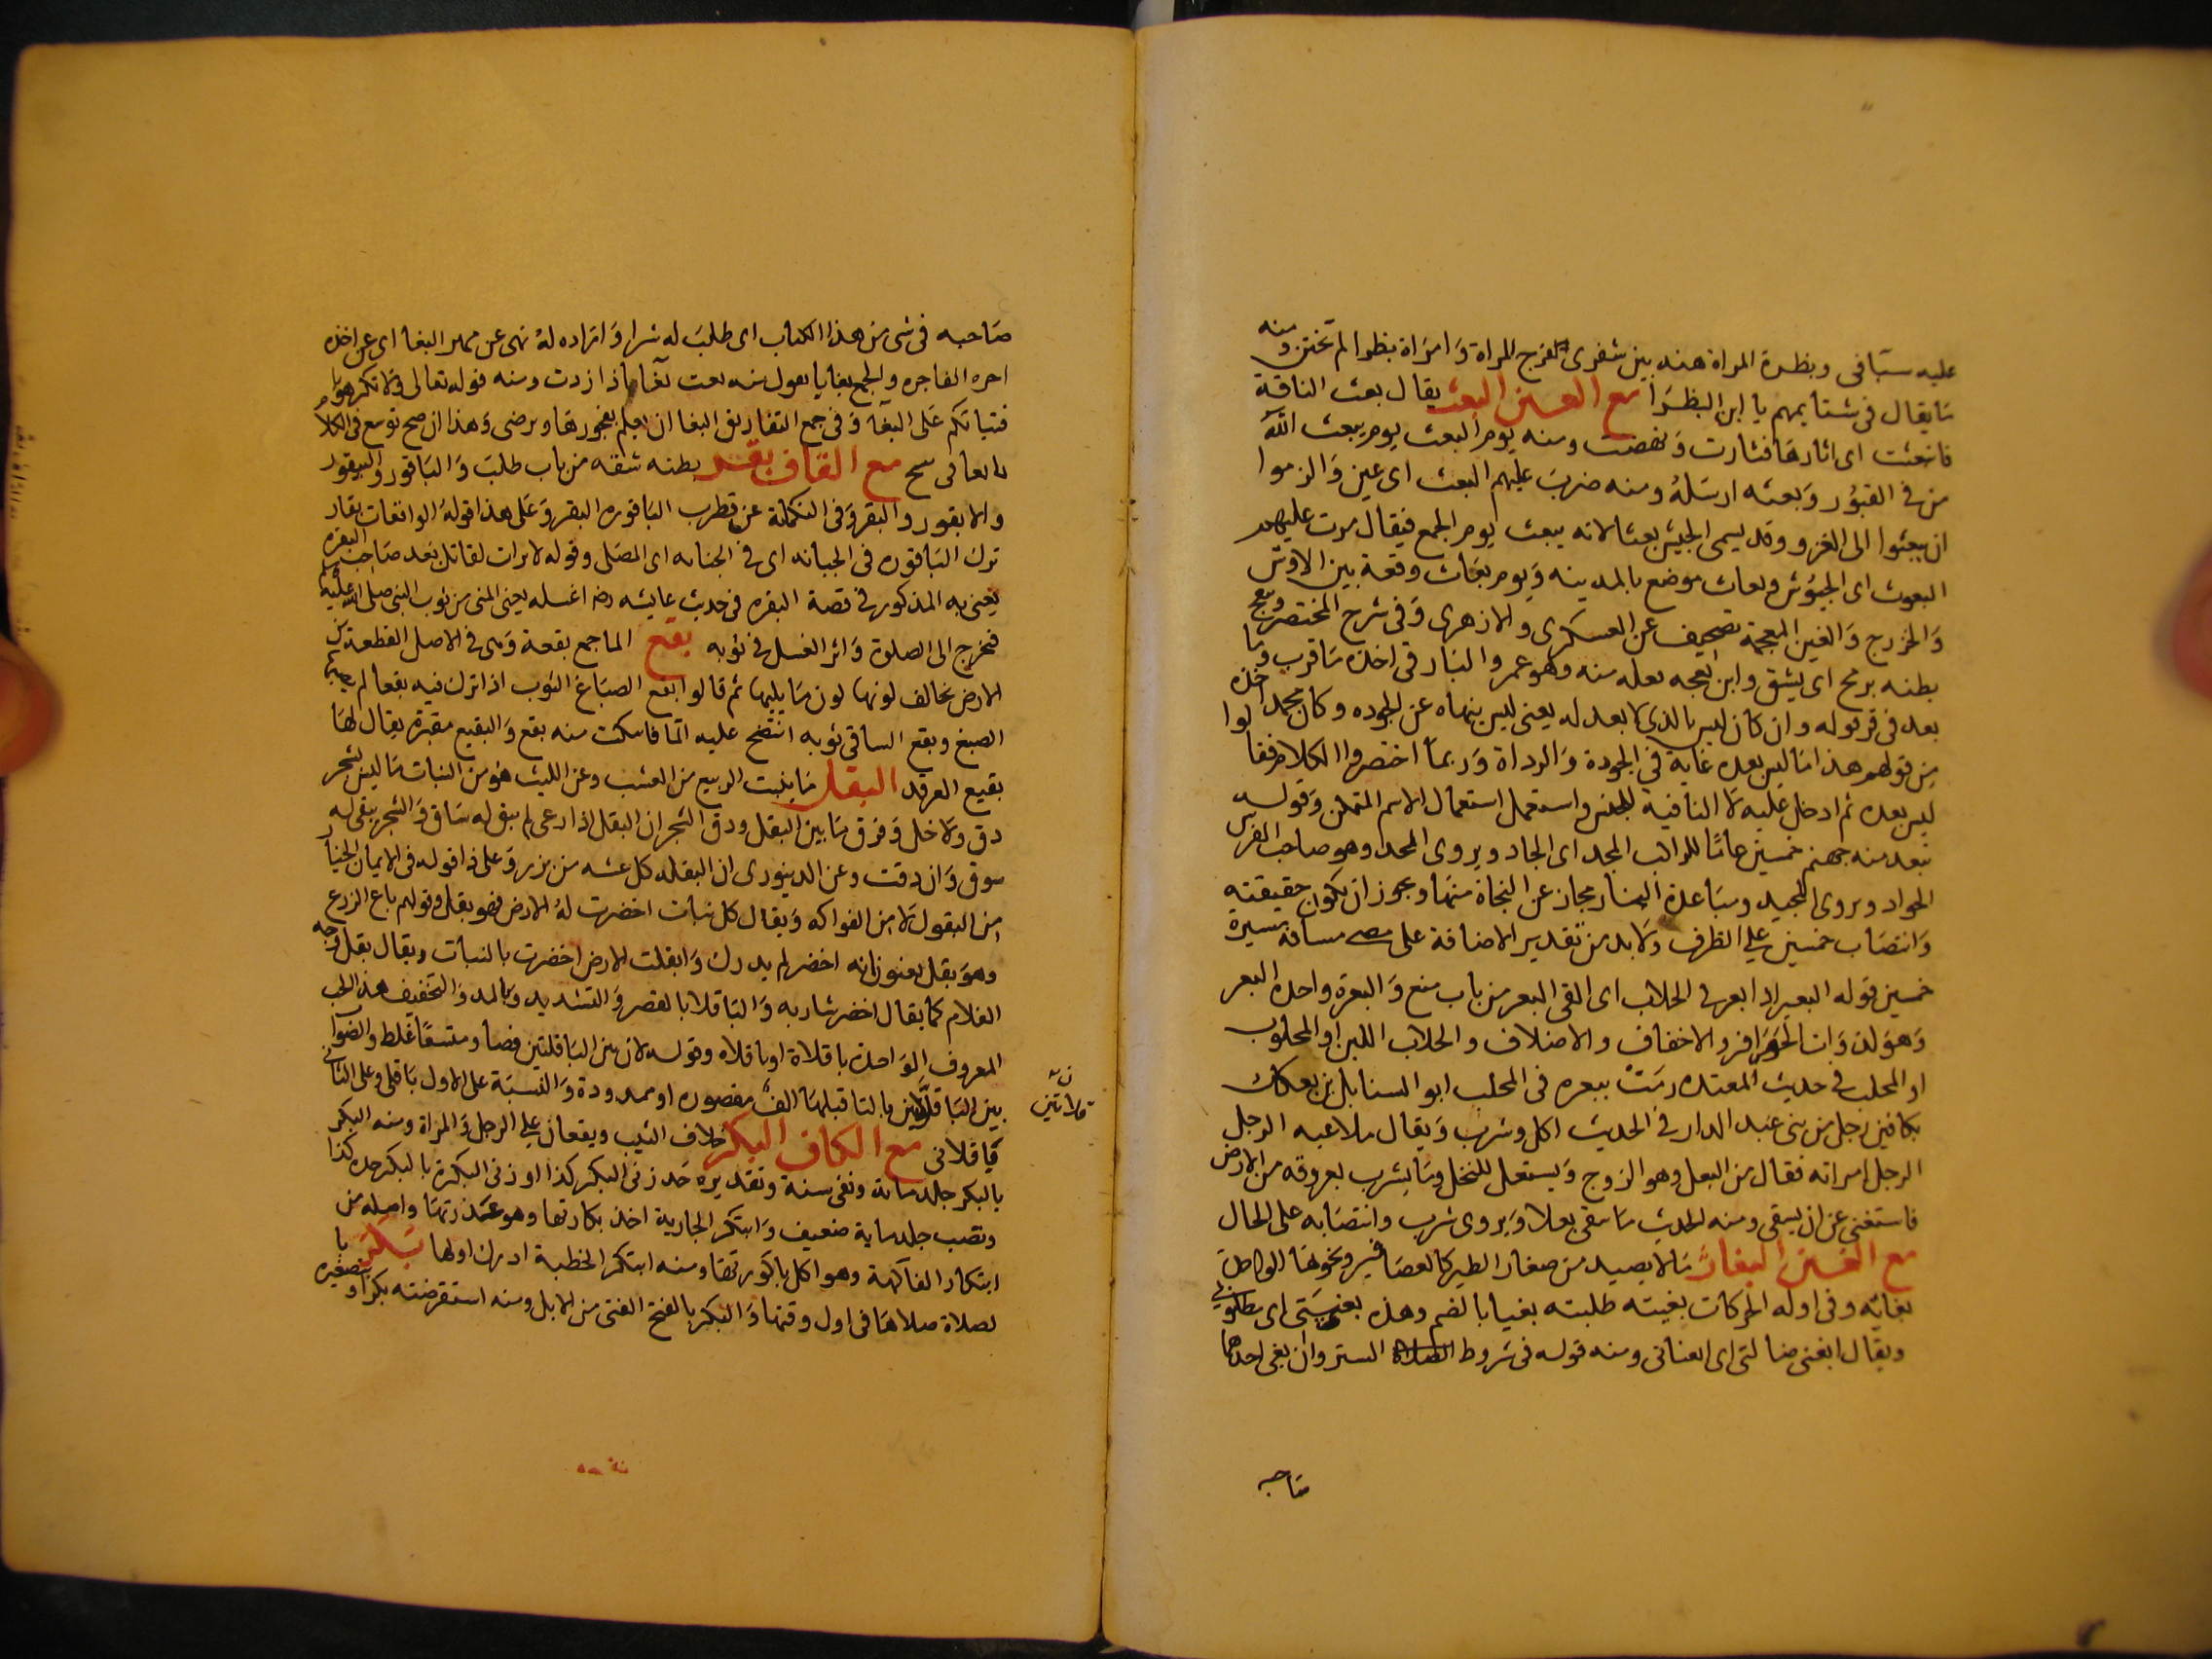 عليه ستاتى وبظرة المراة هنه بين شفرى الفرج للمراة وَامرَاة بظرا لم تختن ومنه
مَا يقال فى شتايمهم يا ابن البظرَا مع العين البعث يقال بعث الناقة
فانبعثت اى اثارهَا فثارت وَنهضت ومنه يوم البعث يوم يبعث الله
من فى القبُور وَبعثه ارسَلهُ ومنه ضربَ عليهم البعث اى عين وَالزموا
ان يبعثوا الى الغزو وقد يسمى الجيش بعثا لانه يبعث يوم الجمع فيقال مرت عليهم
البعوث اى الجيُوش وبعاث موضع بالمدينه وَيوم بعَاث وقعة بين الاوس
وَالخزرج وَالغين المعجمة تصحيف عن العسكرى والازهرى وَفى شرح المختصر وبعج
بطنه برمح اى يشق وابن بعجه بعله منه وهو عمرو النبار فى اخذه مَا قرب وَمَا
بعد فى قوله وان كان ليس بالذى لا بعد له يعنى ليس بنهاه عن الجوده وكان محمد اخذه
من قولهم هذا امَا ليس بعده غاية فى الجودة وَالرداة وَربما اختصروا الكلام فقالوا
ليس بعده ثم ادخل عليه لَا النافية للجنس واستعمل استعمال الاسم المتمكن وَقوله
تبعد منه جهنم خمسين عامًا للراكب المجد اى الجاد ويروى المجد وهو صاحب الفرس
الجواد ويروى المجيد ومبَاعدة النار مجاز عن النجاة منهَا ويجوز ان يكون حقيقته
وَانتصَاب خمسين على الظرف ولَابد من تقدير الاضافة على معنى مسافة مسيرة
خمسين قوله البعير اذا بعر فى الحلاب اى القى البعر من باب منع وَالبعرة واحدة البعر
وَهوَ لذوَات الحَوَافر والاخفاف والاضلاف والحلاب اللبن او المحلوب
او المحلب فى حديث المعتدة رمَتْ ببعره فى المحلب ابو السنابل بن بعكك
بكافين رجل من بنى عبد الدار فى الحديث اكل وشرب وَيقال ملاعبه الرجل
الرجل امراته فقال من البعل وهو الزوج وَيستعمل للنخل ومَا يشرب بعروقه من الارض
فاستغنى عن ان يسقى ومنه الحديث مَا سقى بعلا وَيروى شرب وانتصَابه على الحال
مع الغين البغاثُ مَا لا يصيد من صغار الطير كالعصَافير ونحوهَا الواحدة
بغاثه وفى اوله الحركات بغيته طلبته بغيا بالضم وهذه بغيتى اى مطلوبى
ويقال ابغنى ضالتى اى اعنانى ومنه قوله فى شروط الصلاة الستر وان بغى احدهما
صَاحبه
صَاحبه فى شى من هذا الكتاب اى طلبَ له شرا وَاراده لهُ نهى عن مهر البغا اى عن اخذه
اجره الفاجره والجمع بغايا يعول منه بغت بغا اذا زنت ومنه قوله تعالى وَلا تكرهوا
فتياتكم عَلى البغَاء وَفى جمع التفاريق البغا ان يعلم بفجورهَا ويرضى وَهذا ان صح توسع فى الكلام
مع القاف بقر بطنه شقه من باب طلبَ وَالبَاقور والبيقور
والابقور والبقر وَفى التكملة عن قطرب البَاقوره البقر وَعَلى هذا قولهُ الواقعات بقار
ترك البَاقوره فى الجبانه اى فى الجنانه اى المصَلى وقوله لا يرات لقاتل بَعد صَاحب البقره
يعنى به المذكور فى قصة البقره فى حديث عايشه رضه اغسله يعنى المنى من ثوب النبى صلى الله عليه
فيخرج الى الصلوة وَاثر الغسل فى ثوبه بقع الماجمع بقعة وَهى فى الاصل القطعة من
الارض يخالف لونها لون مَا يليها ثم قالوا بقع الصبَاغ الثوب اذا ترك فيه بقعا لم يصبها
الصبغ وبقع الساقى ثوبه انتضح عليه المَا فابتلت منه بقع وَالبقيع مقبرَة يقال لهَا
بقيع الغرقد البقل مَا ينبت الربيع من العشب وعن الليث هُو من النبات مَا ليس بشجر
دق ولَا جل وَفرق مَا بين البقل ودق الشجر ان البقل اذا رعى لم يبق له سَاق وَالشجر يبقى له
سوق وَان دقت وعن الدينورى ان البقله كل عشبه من بزر وَعلى ذا قوله فى الايمان الخيار
من البقول لَا من الفواكه وَيقال كل نبات اخضرت لهُ الارض فهو بقل وقولهم باع الزرع
وهوَ بقل يعنون انه اخضر لم يدرك وَابقلت الارض اخضرت بالنبات ويقال بقل وجه
الغلام كما يقال اخضر شاربه وَالبَاقلا بالقصر وَالتشديد وَبالمد وَالتخفيف هذا الحب
المعروف الوَاحدة باقلاة او باقلاه وقوله لان بين البَاقلتين فصَا ومتسعًا غلط والصَّوَاب
بين البَاقلّاتين بالتا قبلهَا الفُ مقصوره او ممدودة وَالنسبَة على الاول بَاقلى وعلى الثانى
بَاقلانى مع الكاف البكر خلاف الثيب ويقعان على الرجل وَالمرَاة ومنه البكر
بالبكر جلد ماية ونفى سنة وتقديره حَد زنى البكر كذا او زنى البكرة بالبكر حده كذا
ونصب جلد ماية ضعيف وَابتكر الجارية اخذ بكارتها وهو عَذرتهَا واصله من
ابتكار الفاكهة وهو اكل باكورتها ومنه ابتكر الخطبة ادرك اولها بَكَّر با
لصلاة صلاهَا فى اول وقتها وَالبكر بالفتح الفتى من الابل ومنه استقرضته بكرا وبتصغيره
قلاتين